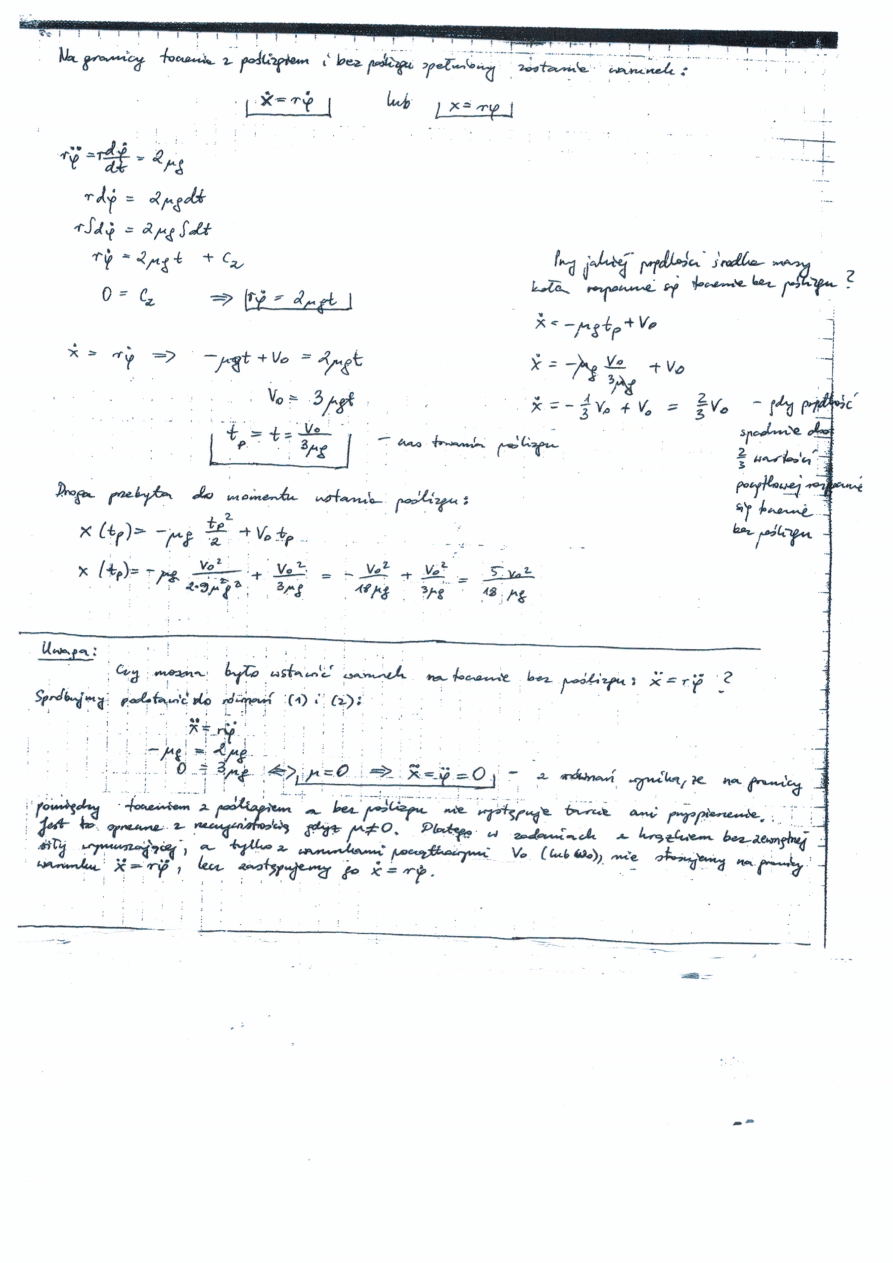 Na granicy toczenia z poślizgiem i bez poślizgu spełniony zostanie warunek:
ẋ = rφ̇ lub x = rφ
rφ̈ = r dφ̇/dt = 2μg
rdφ̇ = 2μgdt
r∫dφ̇ = 2μg∫dt
rφ̇ = 2μgt + C₂
0 = C₂ ⇒ rφ̇ = 2μgt
ẋ = rφ̇ ⇒ -μgt + V₀ = 2μgt
V₀ = 3μgt
t_p = t = V₀/3μg - czas trwania poślizgu
Przy jakiej prędkości środka masy
koła rozpocznie się toczenie bez poślizgu?
ẋ = -μgt_p + V₀
ẋ = -μg V₀/3μg + V₀
ẋ = -1/3 V₀ + V₀ = 2/3 V₀ - gdy prędkość
spadnie do
2/3 wartości
początkowej rozpocznie
się toczenie
bez poślizgu
Droga przebyta do momentu ustania poślizgu:
x(t_p) = -μg t_p²/2 + V₀ t_p
x(t_p) = -μg V₀²/2·9μ²g² + V₀²/3μg = -V₀²/18μg + V₀²/3μg = 5/18 V₀²/μg
Uwaga:
Czy można było wstawić warunek na toczenie bez poślizgu: ẍ = rφ̈ ?
Spróbujmy podstawić do równań (1) i (2):
ẍ = rφ̈
-μg = 2μg
0 = 3μg ⇔ μ=0 ⇒ ẍ = φ̈ = 0 - z równań wynika, że na granicy
pomiędzy toczeniem z poślizgiem a bez poślizgu nie występuje tarcie ani przyspieszenie.
Jest to sprzeczne z rzeczywistością gdyż μ≠0. Dlatego w zadaniach z krążkiem bez zewnętrznej
siły wymuszającej, a tylko z warunkami początkowymi V₀ (lub ω₀), nie stosujemy na granicy
warunku ẍ = rφ̈, lecz zastępujemy go ẋ = rφ̇.